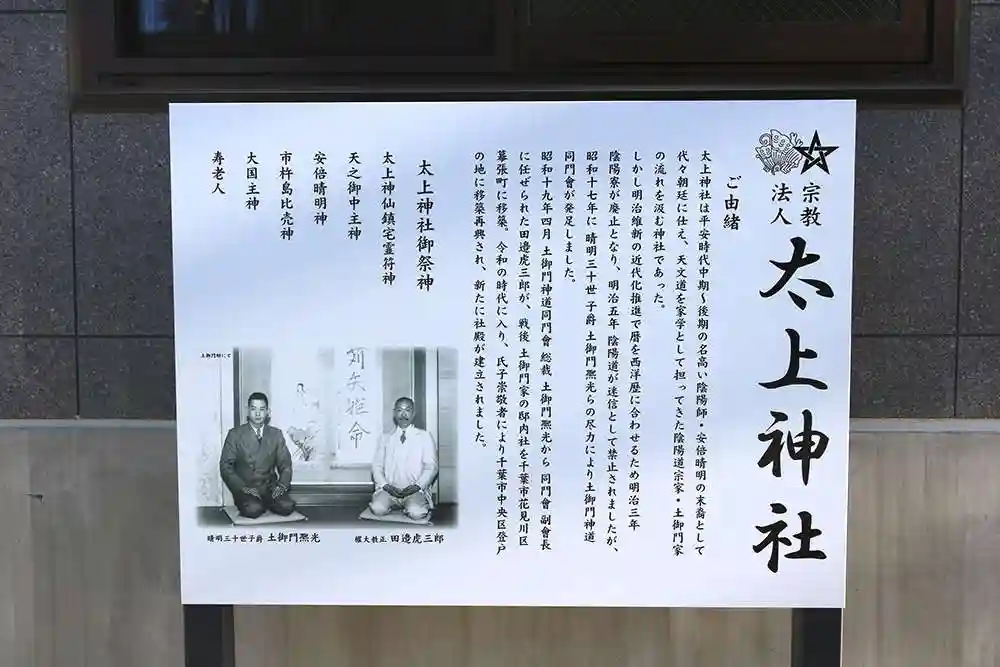 宗教
法人
太上神社
ご由緒
太上神社は平安時代中期~後期の名高い陰陽師・安倍晴明の末裔として
代々朝廷に仕え、天文道を家学として担ってきた陰陽道宗家・土御門家
の流れを汲む神社であった。
しかし明治維新の近代化推進で暦を西洋歴に合わせるため明治三年
陰陽寮が廃止となり、明治五年 陰陽道が迷信として禁止されましたが、
昭和十七年に 晴明三十世 子爵 土御門凞光らの尽力により土御門神道
同門會が発足しました。
昭和十九年四月 土御門神道同門會 総裁 土御門凞光から 同門會 副會長
に任ぜられた田邉虎三郎が、戦後 土御門家の邸内社を千葉市花見川区
幕張町に移築。令和の時代に入り、氏子崇敬者により千葉市中央区登戸
の地に移築再興され、新たに社殿が建立されました。
太上神社御祭神
太上神仙鎮宅霊符神
天之御中主神
安倍晴明神
市杵島比売神
大国主神
寿老人
土御門邸にて
晴明三十世子爵 土御門凞光
権大教正 田邉虎三郎